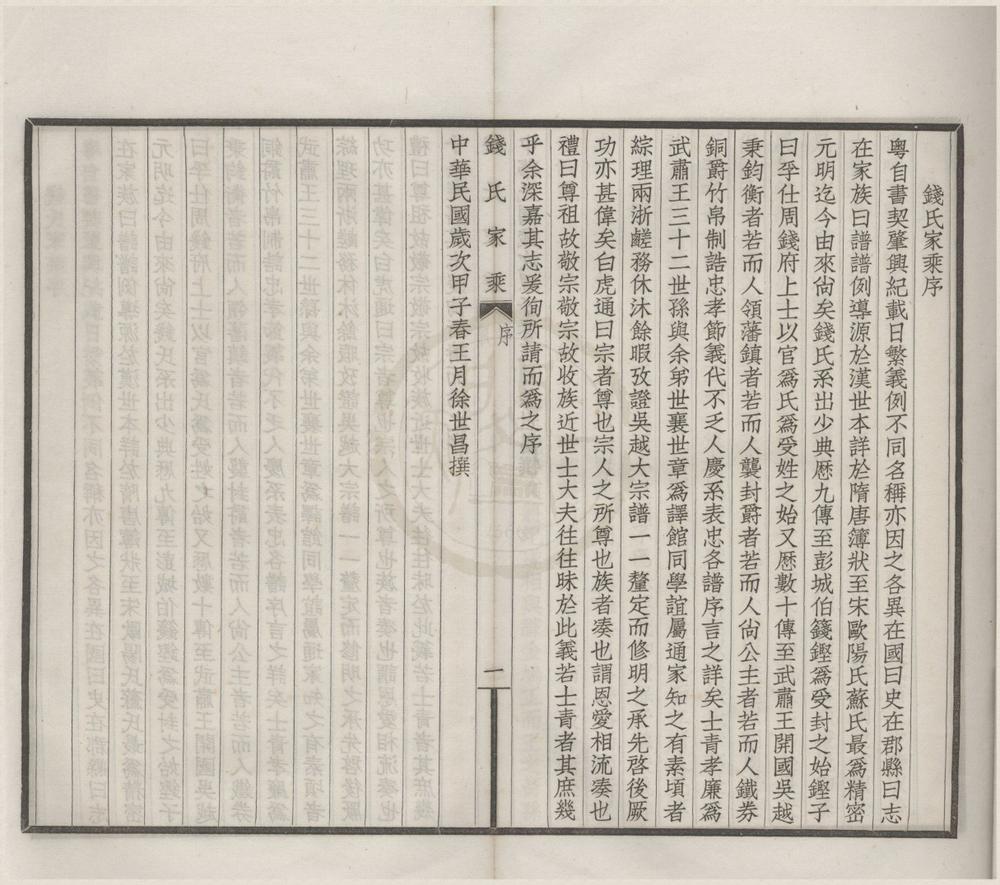 錢氏家乘序
粵自書契肇興紀載日繁義例不同名稱亦因之各異在國曰史在郡縣曰志
在家族曰譜譜例導源於漢世本詳於隋唐簿狀至宋歐陽氏蘇氏最爲精密
元明迄今由來尙矣錢氏系出少典歷九傳至彭城伯籛鏗爲受封之始鏗子
曰孚仕周錢府上士以官爲氏爲受姓之始又歷數十傳至武肅王開國吳越
秉鈞衡者若而人領藩鎮者若而人襲封爵者若而人尙公主者若而人鐵券
銅爵竹帛制誥忠孝節義代不乏人慶系表忠各譜序言之詳矣士青孝廉爲
武肅王三十二世孫與余弟世襄世章爲譯館同學誼屬通家知之有素頃者
綜理兩浙鹺務休沐餘暇攷證吳越大宗譜一一釐定而修明之承先啓後厥
功亦甚偉矣白虎通曰宗者尊也宗人之所尊也族者湊也謂恩愛相流湊也
禮曰尊祖故敬宗敬宗故收族近世士大夫往往昧於此義若士青者其庶幾
乎余深嘉其志爰徇所請而爲之序
錢氏家乘
序
一
中華民國歲次甲子春王月徐世昌撰